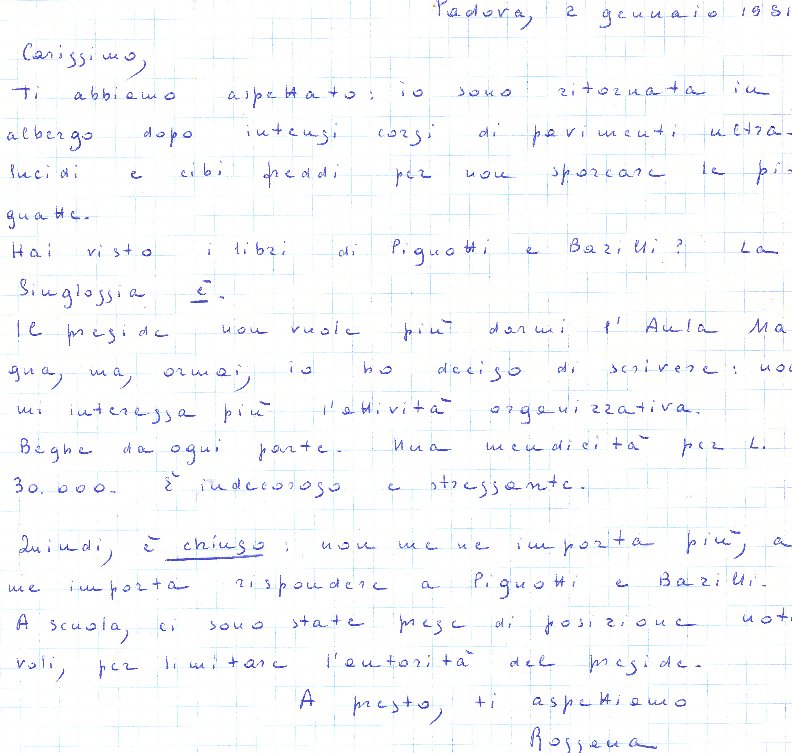 Padova, 2 gennaio 1981
Carissimo,
Ti abbiamo aspettato: io sono ritornata in
albergo dopo intensi corsi di pavimenti ultra-
lucidi e cibi freddi per non sporcare le pi-
gnatte.
Hai visto i libri di Pignotti e Barilli? La
Singlossia è.
Il preside non vuole più darmi l'Aula Ma
gna, ma, ormai, io ho deciso di scrivere: non
mi interessa più l'attività organizzativa.
Beghe da ogni parte. Una mendicità per L.
30.000. È indecoroso e stressante.
Quindi, è chiuso: non me ne importa più, a
me importa rispondere a Pignotti e Barilli.
A scuola, ci sono state prese di posizione note
voli, per limitare l'autorità del preside.
A presto, ti aspettiamo
Rossana